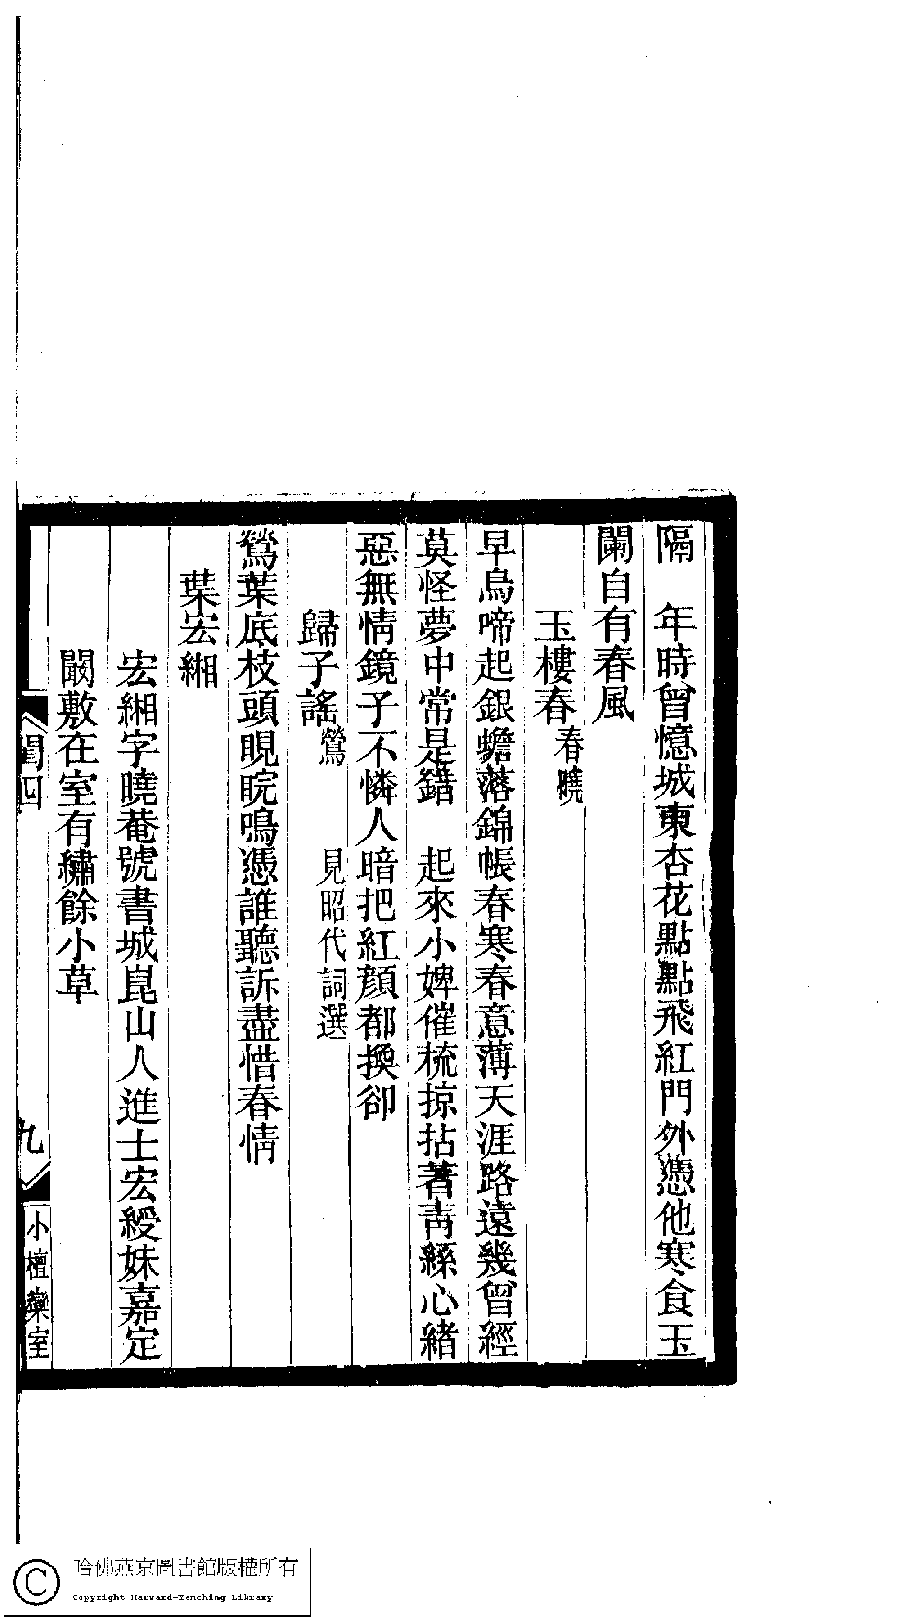 隔　年時曾憶城東杏花點點飛紅門外憑他寒食玉
闌自有春風
玉樓春春曉
早烏啼起銀蟾落錦帳春寒春意薄天涯路遠幾曾經
莫怪夢中常是錯　起來小婢催梳掠拈著青絲心緒
惡無情鏡子不憐人暗把紅顏都換卻
歸子謠鶯　見昭代詞選
鶯葉底枝頭睍睆鳴憑誰聽訴盡惜春情
葉宏緗
宏緗字曉菴號書城崑山人進士宏綬妹嘉定
闞敷在室有繡餘小草
閨四
九
小檀欒室
哈佛燕京圖書館版權所有
Copyright Harvard-Yenching Library